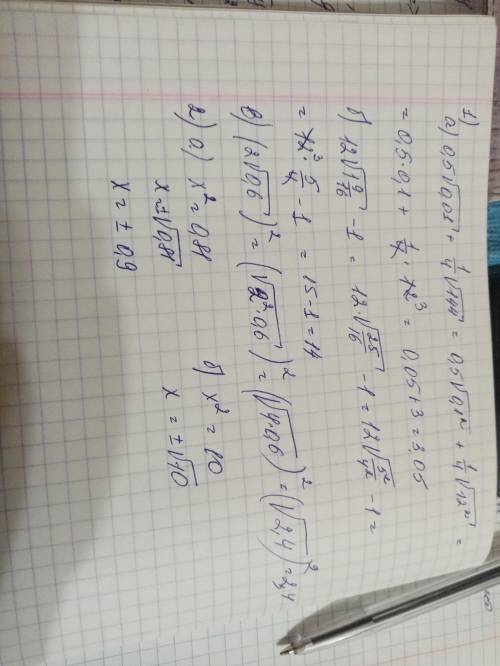 1)
а) 0,5√0,01 + 1/4 √144 = 0,5√0,1² + 1/4 √12² =
= 0,5·0,1 + 1/4 · 12³ = 0,05+3=3,05
б) 12√1 9/16 - 1 = 12·√25/16 - 1 = 12√5²/4² - 1 =
= 12³ · 5/4 - 1 = 15-1=14
в) (2√0,6)² = (√2²·0,6)² = (√4·0,6)² = (√2,4)² = 2,4
2) а) x² = 0,81 б) x² = 10
x = ±√0,81 x = ±√10
x = ± 0,9